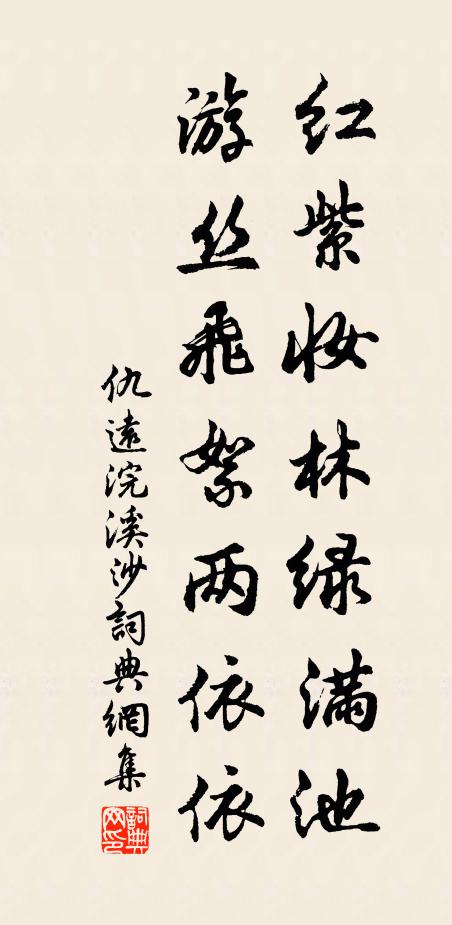 红紫妆林绿满池
游丝飛絮两依依
仇遠浣溪沙詞典網集
詞典
网印